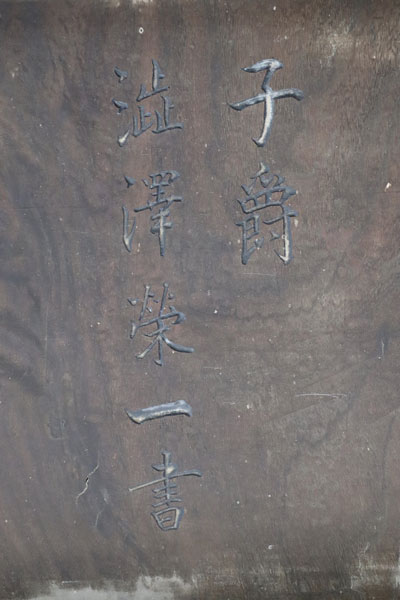 子爵
澁澤榮一書